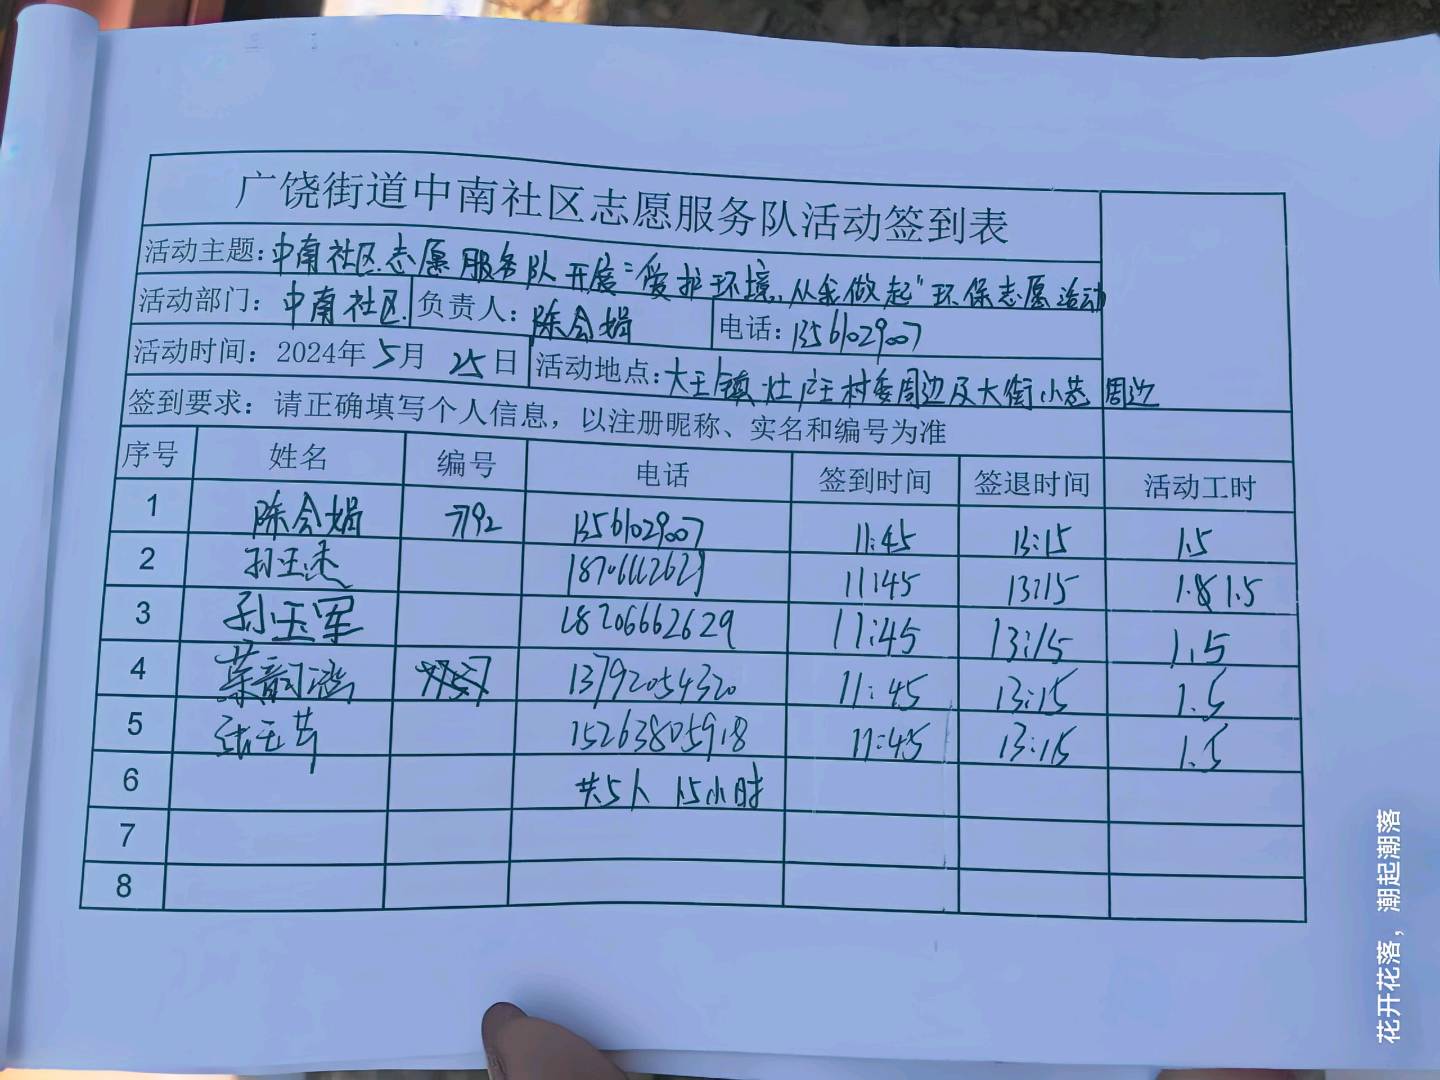 广饶街道中南社区志愿服务队活动签到表
活动主题：中南社区志愿服务队开展“爱护环境，从余做起”环保志愿活动
活动部门：中南社区 负责人：陈会娟 电话：13561029007
活动时间：2024年5月25日 活动地点：大王镇灶户王村委周边及大街小巷周边
签到要求：请正确填写个人信息，以注册昵称、实名和编号为准
序号 姓名 编号 电话 签到时间 签退时间 活动工时
1 陈会娟 7792 13561029007 11:45 13:15 1.5
2 孙玉杰 11:45 13:15 1.5
3 孙玉军 18206662629 11:45 13:15 1.5
4 13792054320 11:45 13:15 1.5
5 15263805918 11:45 13:15 1.5
6 共5人 15小时
7
8
花开花落，潮起潮落